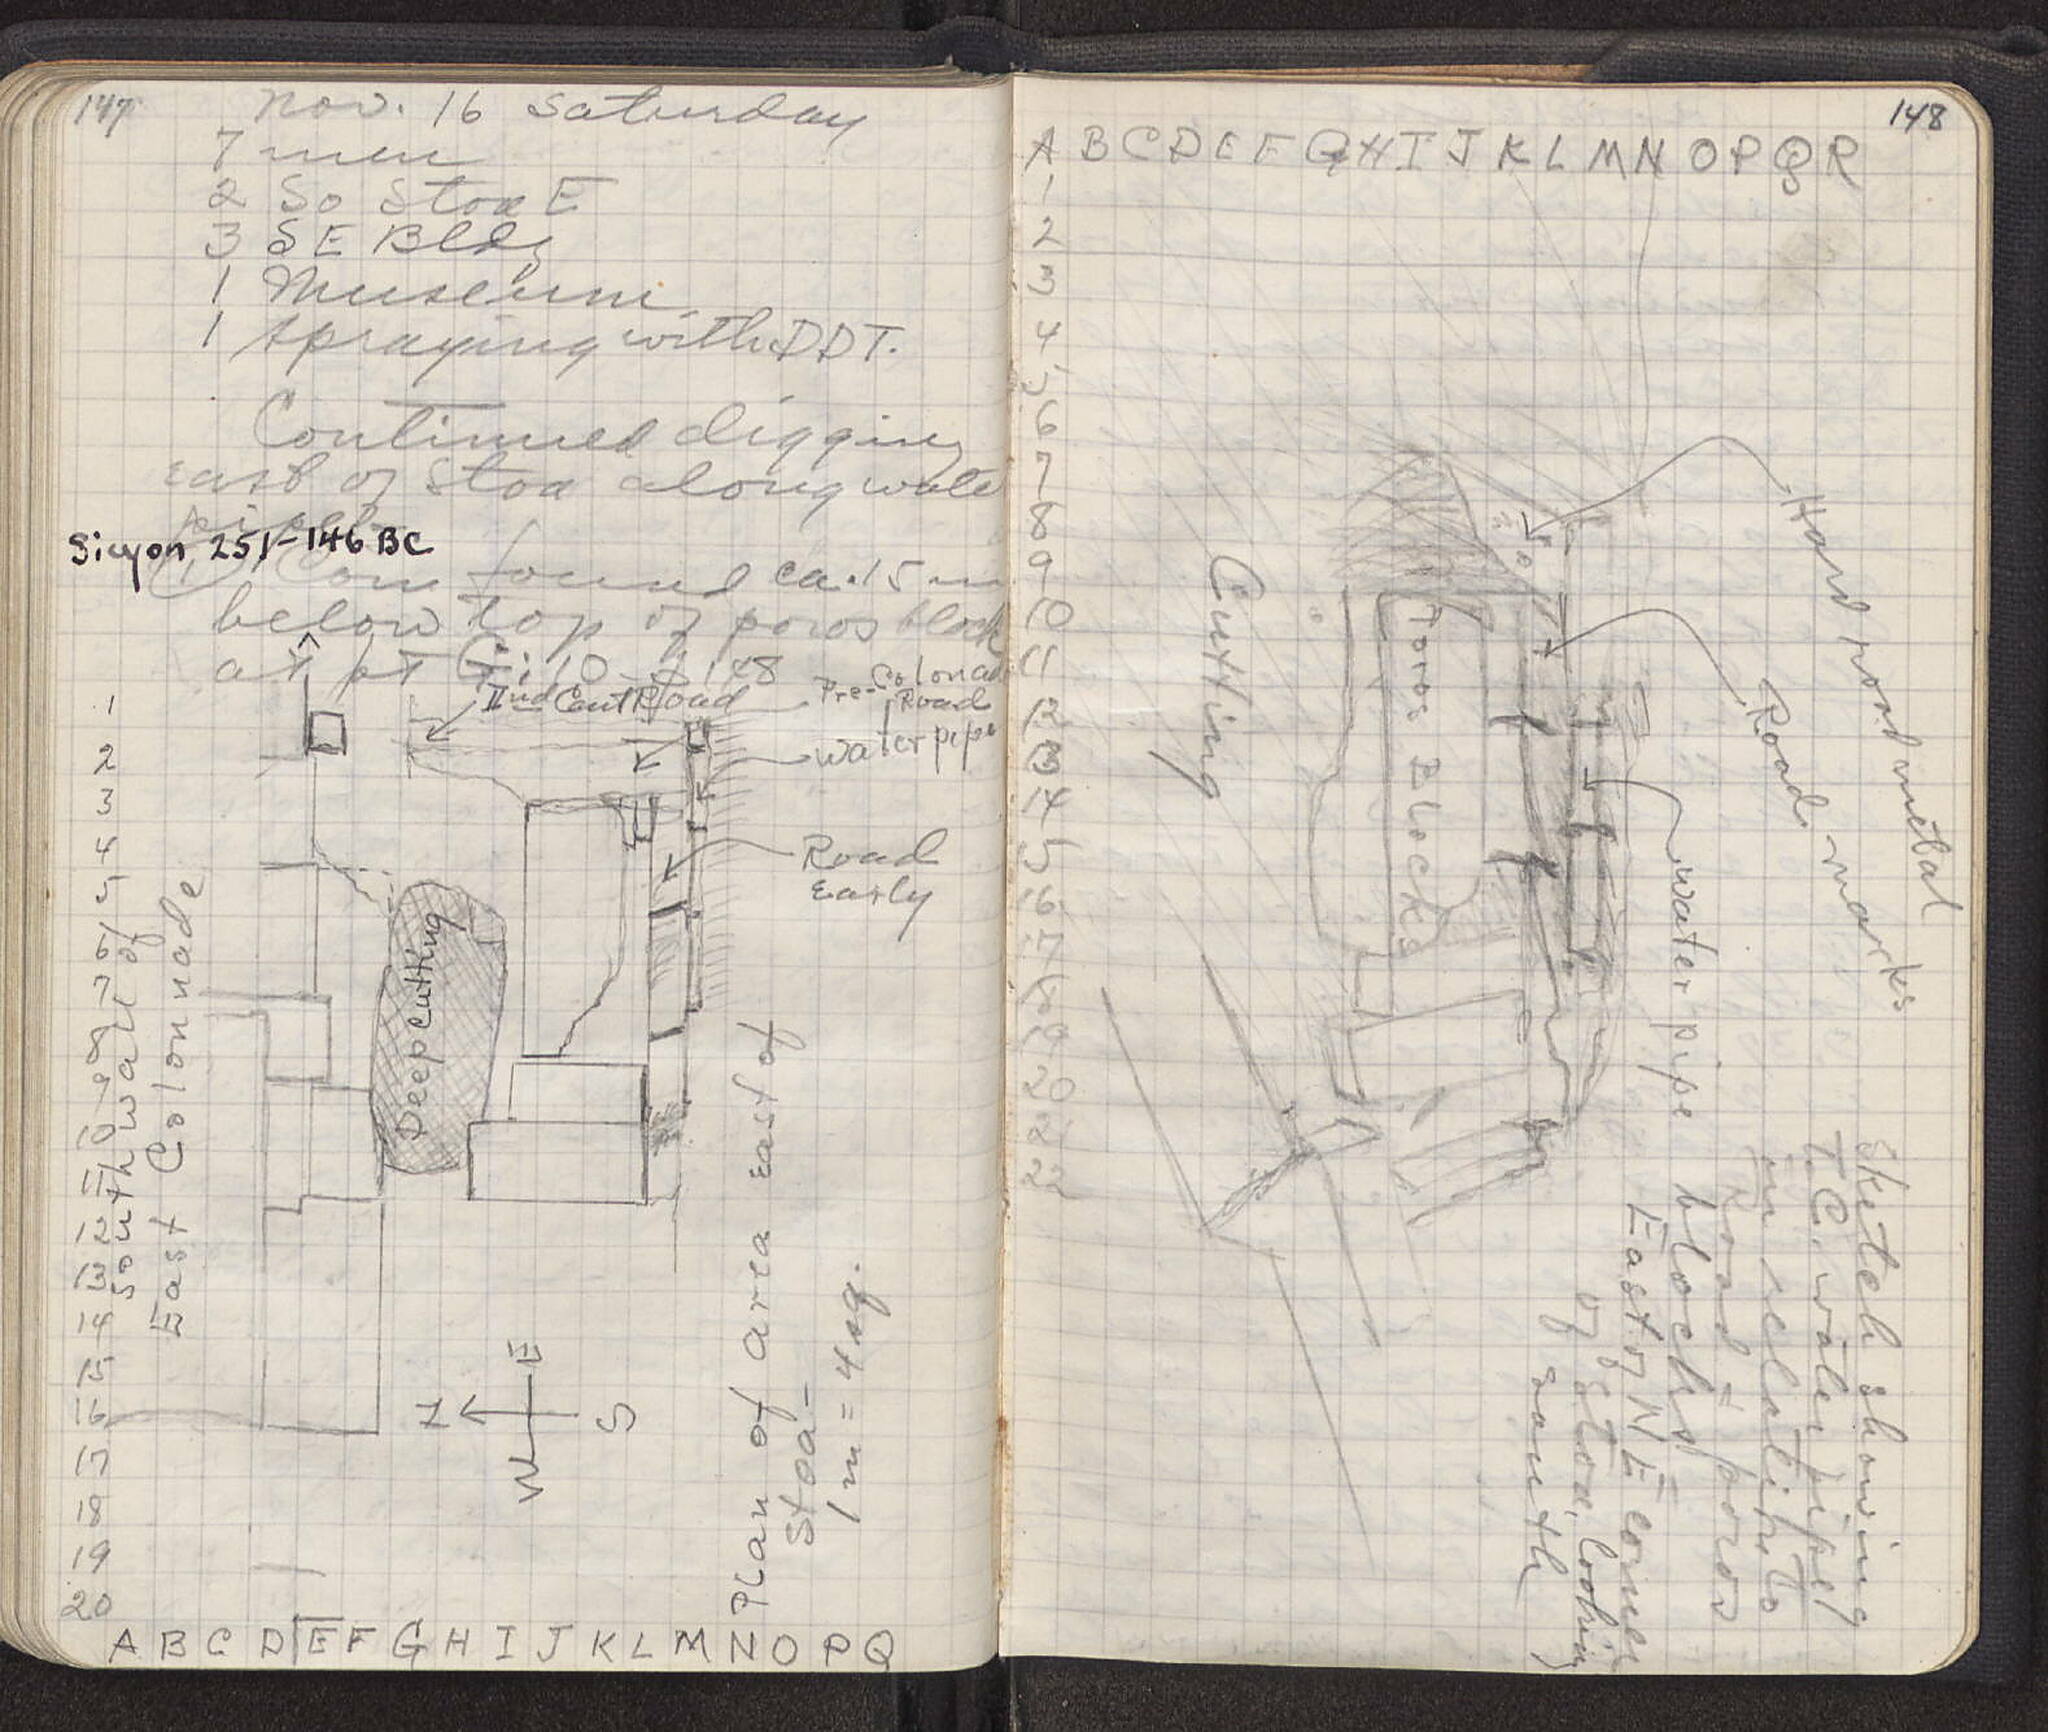 147
Nov. 16 Saturday
7 men
2 So Stoa E
3 SE Bldg
1 Museum
1 spraying with DDT.
Continued digging
east of Stoa along water
pipe.
Sicyon 251-146 BC
(1) Coin found ca .15 m
below top of poros block
at pt G:10 p 148
IInd Cent Road
Pre-Colonade
Road
water pipe
Road
Early
Deep cutting
South wall of
East Colonnade
Plan of area East of
Stoa-
1 m = 4 sq.
N
E
S
W
1
2
3
4
5
6
7
8
9
10
11
12
13
14
15
16
17
18
19
20
A B C D E F G H I J K L M N O P Q
148
A B C D E F G H I J K L M N O P Q R
1
2
3
4
5
6
7
8
9
10
11
12
13
14
15
16
17
18
19
20
21
22
Cutting
Poros Blocks
Hard road metal
Road marks
water pipe
Sketch showing
T.C. water pipe
in relation to
Road & poros
blocks
East of NE corner
of Stoa, looking
south